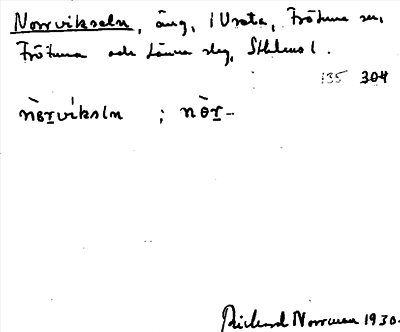 Norrvikseln, äng, 1 Vreta, Frötuna sn,
Frötuna och Länna skg, Sthlms l.
135 304
nòrvikseln ; nòr-
Rickard Norrman 1930.